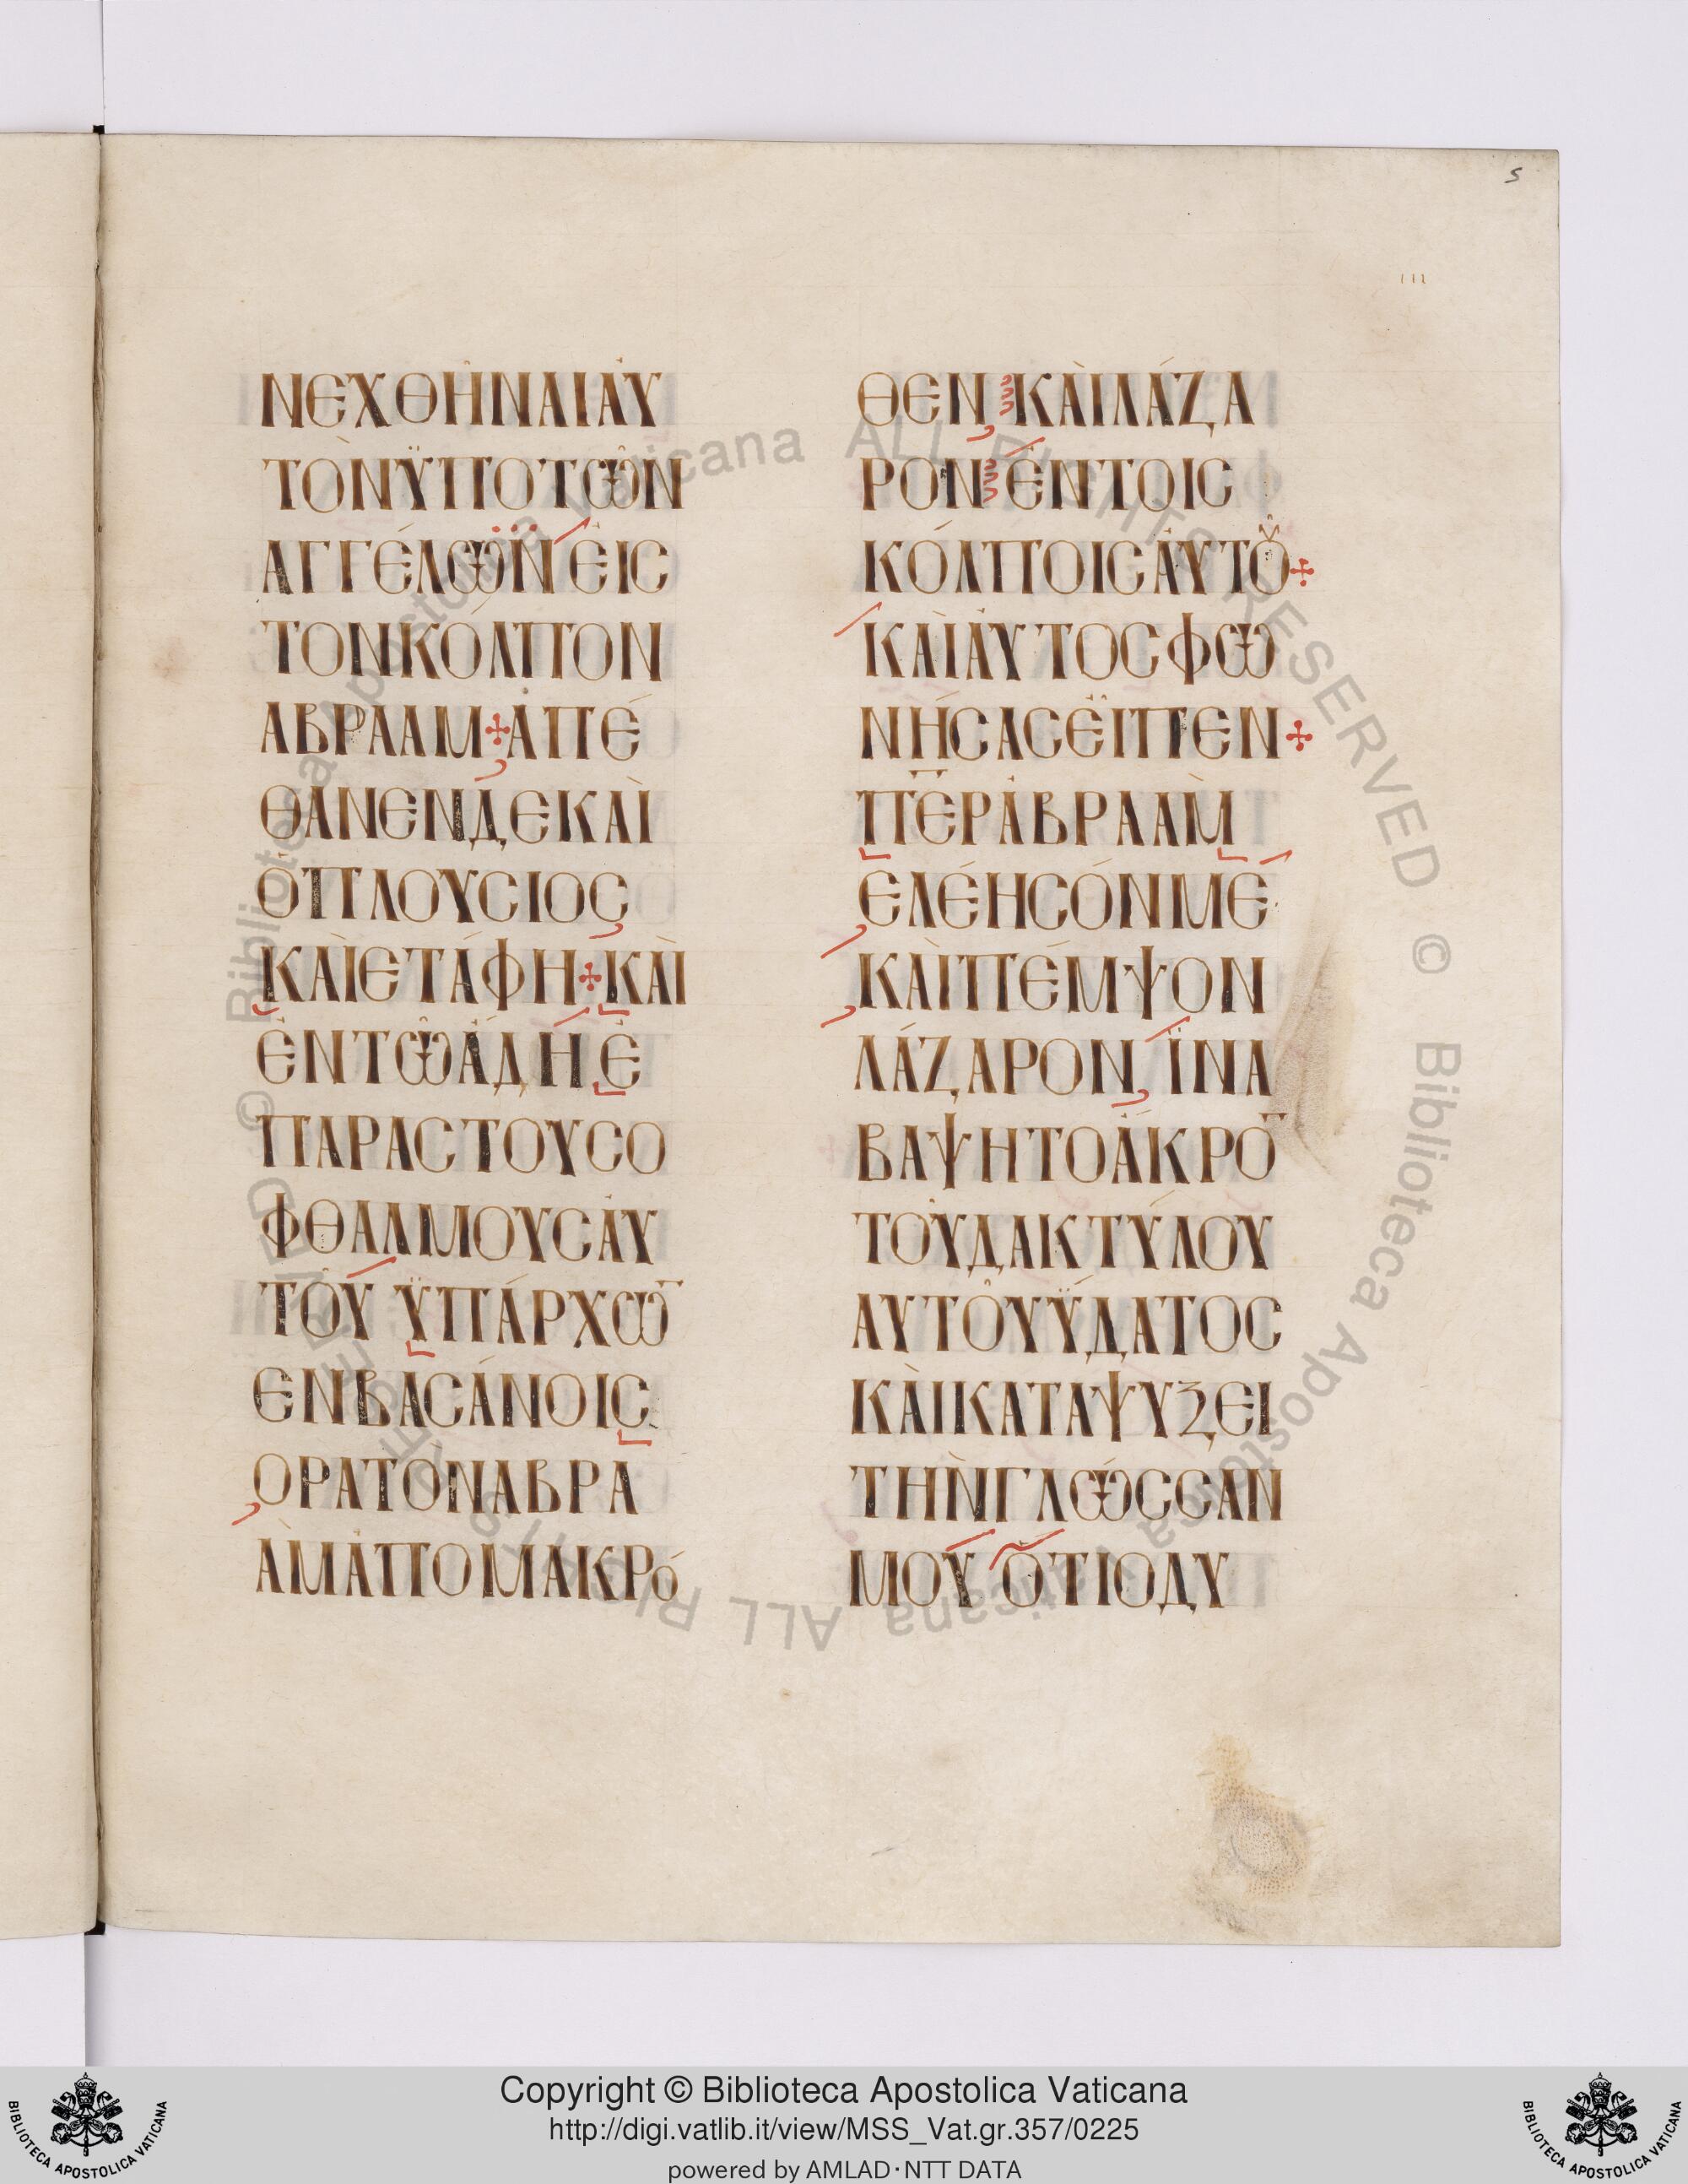 5
ΝΕΧΘΗ͂ΝΑΙἈΥ
ΤῸΝΫΠΟΤῶΝ
ΑΓΓΈΛΩΝἘΙΣ
ΤΟΝΚΌΛΠΟΝ
ΑΒΡΑΑΜ+ἈΠΈ
ΘΑΝΕΝΔΕΚΑῚ
ὉΠΛΟΥΣΙΟΣ
ΚΑῚΕΤΆΦΗ+ΚΑῚ
ἘΝΤῶἍΔΗἘ
ΠΑΡΑΣΤΟΥΣΟ
ΦΘΑΛΜΟΥΣἈΥ
ΤΟΥ͂ΫΠΆΡΧΩ̄
ΕΝΒΑΣΆΝΟΙΣ
ΟΡΑΤῸΝΑΒΡΑ
ᾺΜἈΠΟΜΑΚΡΌ
ΘΕΝ ΚΑῚΛΆΖΑ
ΡΟΝ ἘΝΤΟΙΣ
ΚΌΛΠΟΙΣἈΥΤΟΥ͂+
ΚΑῚἈΥΤΟΣΦΩ
ΝΉΣΑΣΕἾΠΕΝ+
ΠΕΡἈΒΡΑᾺΜ
ἘΛΈΗΣΌΝΜΕ
ΚΑῚΠΈΜΨΟΝ
ΛΆΖΑΡΟΝ ΪΝΑ
ΒΑΨΗΤΟΆΚΡΟ̄
ΤΟΥ͂ΔΑΚΤΎΛΟΥ
ΑΥΤΟΥ͂ΫΔΑΤΟΣ
ΚΑῚΚΑΤΑΨΥΞΕΙ
ΤῊΝΓΛΏΣΣΑΝ
ΜΟΥ ὍΤΙΟΔΥ
© Biblioteca Apostolica Vaticana ALL RIGHTS RESERVED © Biblioteca Apostolica Vaticana ALL RIGHTS RESERVED
Copyright © Biblioteca Apostolica Vaticana
http://digi.vatlib.it/view/MSS_Vat.gr.357/0225
powered by AMLAD·NTT DATA
BIBLIOTECA APOSTOLICA VATICANA
BIBLIOTECA APOSTOLICA VATICANA